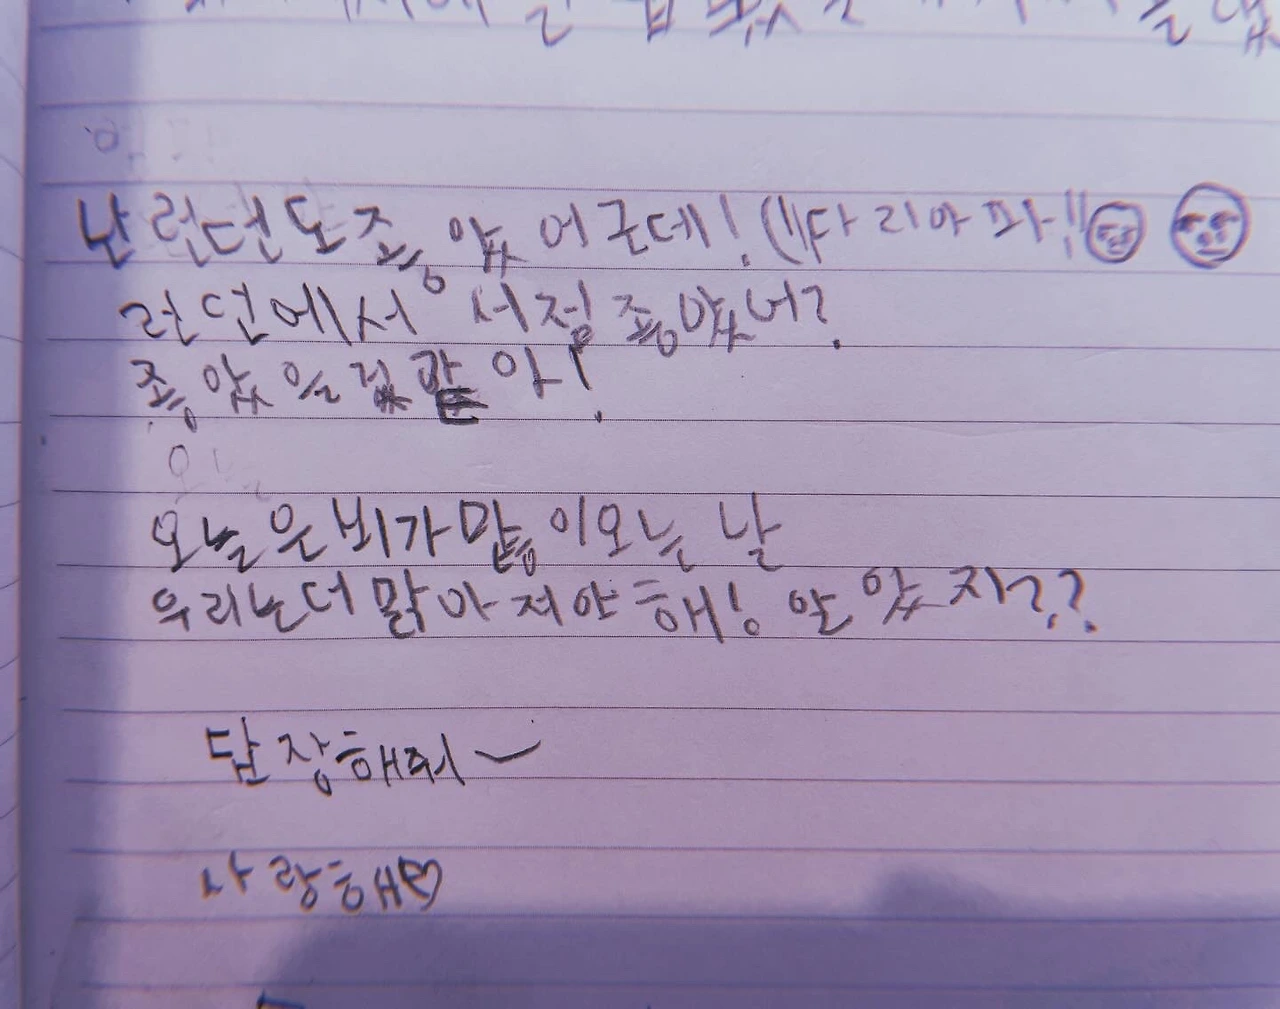 난 런던도 죻았어 근데! (("다리아파"
런던에서 서점 죻았너?
죻았을 것 같아!
오늘은 뵈가 많이오는 날
우리는더 맑아져야 해! 알았지??
답장해줘~
사랑해♡